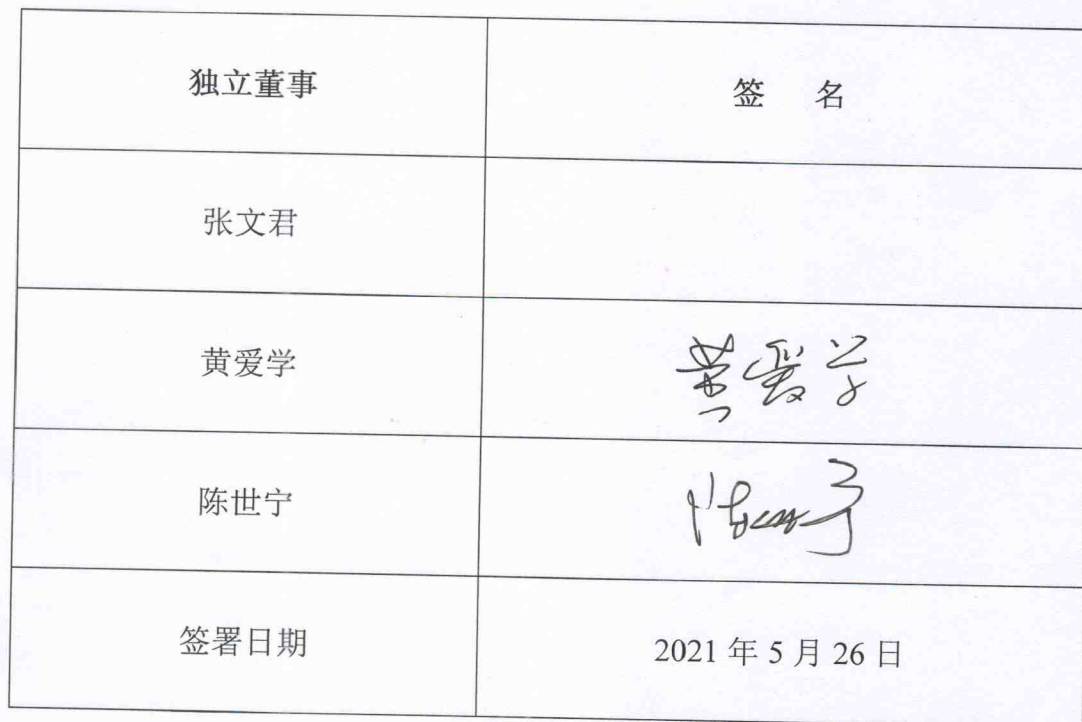 独立董事 签 名
张文君
黄爱学 黄爱学
陈世宁 陈世宁
签署日期 2021 年 5 月 26 日